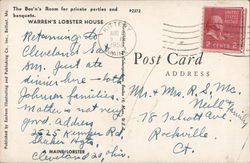 The Bos'n's Room for private parties and banquets. P2272
WARREN'S LOBSTER HOUSE
Returning to
Cleveland
Sh. Just ate
dinner here - both
Johnson families.
Mattie is not very
good. address
2525 Kemper Rd.
Shaker Hgts.
Cleveland 20, Ohio.
A MAINE LOBSTER
Published by Eastern Illustrating and Publishing Co., Inc. Belfast, Me.
KITTERY
AUG
2 CENTS 2
Post Card
ADDRESS
Mr. + Mrs. R. S. Mc.
Neill Family
78 Talcott Ave.
Rockville.
Ct.